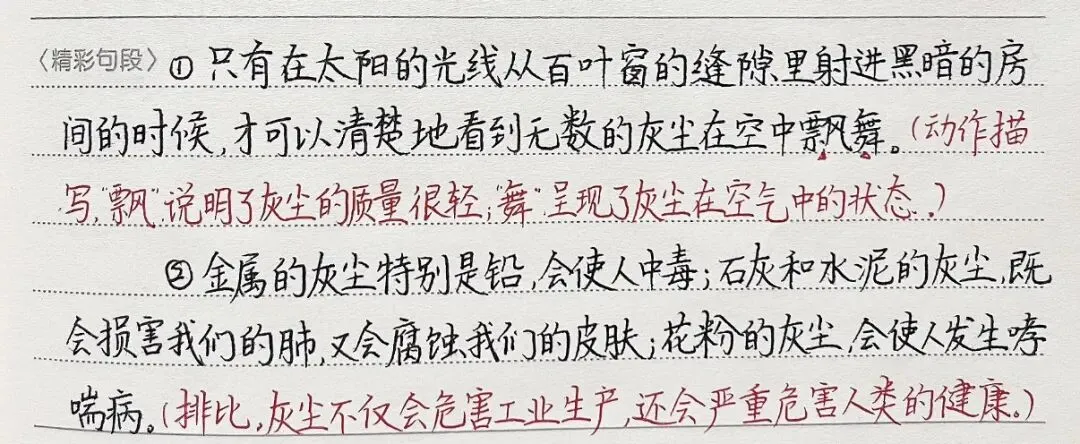 〈精彩句段〉①只有在太阳的光线从百叶窗的缝隙里射进黑暗的房
间的时候,才可以清楚地看到无数的灰尘在空中飘舞。(动作描
写,“飘”说明了灰尘的质量很轻;“舞”呈现了灰尘在空气中的状态。)
②金属的灰尘特别是铅,会使人中毒;石灰和水泥的灰尘,既
会损害我们的肺,又会腐蚀我们的皮肤;花粉的灰尘,会使人发生哮
喘病。(排比,灰尘不仅会危害工业生产,还会严重危害人类的健康。)